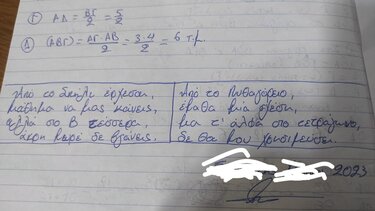 Γ) ΑΔ = ΒΓ/2 = 5/2
Δ) (ΑΒΓ) = ΑΓ·ΑΒ/2 = 3·4/2 = 6 τ.μ.
Από το έρχεσαι,
μάθημα να μας κάνεις,
αλλά στο Β τέσσερα
άκρη καρέ δε βγάνεις.
Από το Πυθαγόρειο,
έμαθα μία σχέση,
μα τ' άλφα στο τετράγωνο,
δε θα μου χρησιμεύσει.
2023